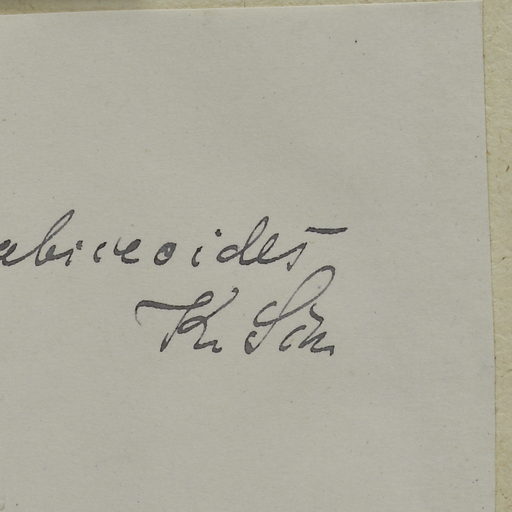 abiceoides
K. Sch.